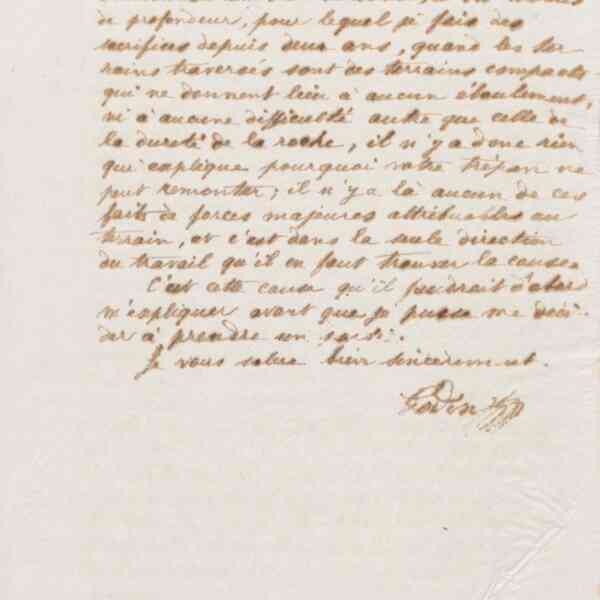 de profondeur, pour lequel je fais des
sacrifices depuis deux ans, quand les ter
rains traversés sont des terrains compacts
qui ne donnent lieu à aucun éboulement,
ni à aucune difficulté autre que celle de
la dureté de la roche, il n'y a donc rien
qui explique pourquoi votre trépan ne
peut remonter; il n'y a là aucun de ces
faits de forces majeures attribuables au
terrain, et c'est dans la seule direction
du travail qu'il en faut trouver la cause.
C'est cette cause qu'il faudrait d'abord
m'expliquer avant que je puisse me déci-
der à prendre un
Je vous salue bien sincèrement.
Godin